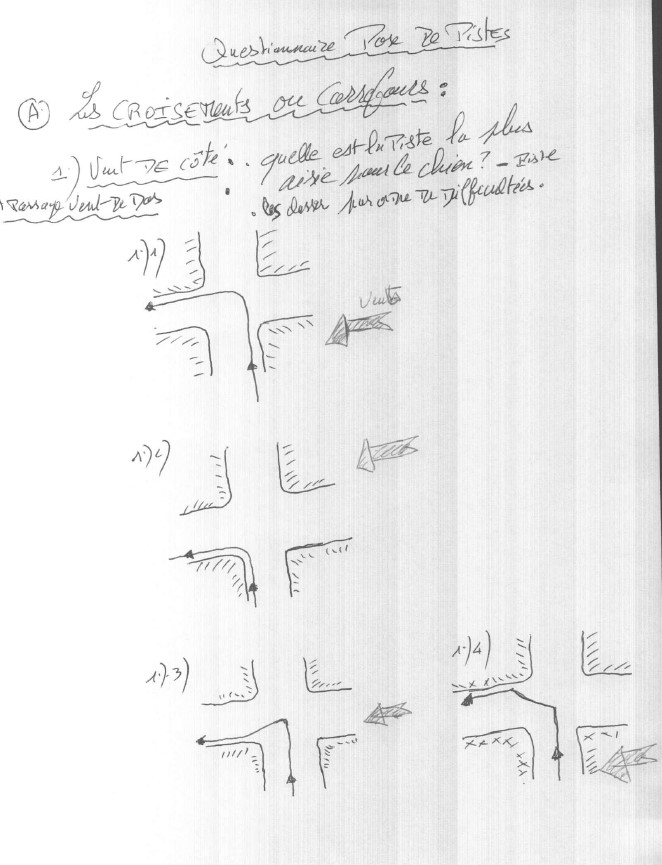 Questionnaire Pose De Pistes
(A) Les CROISEMENTS ou Carrefours :
1.) Vent DE côté . . quelle est la Piste la plus
aisée pour le chien ? -
Passage Vent-De Dos . les classer par ordre De Difficultées.
1.)1)
Vent
1.)2)
1.)3)
1.)4)